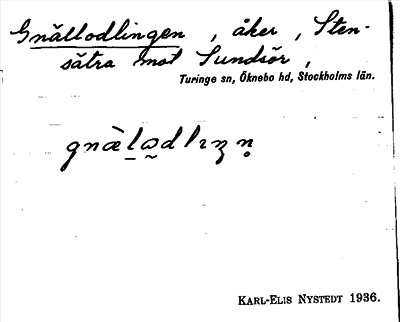 Gnällodlingen, åker, Sten-
sätra mot Sundsör,
Turinge sn, Öknebo hd, Stockholms län.
gnὲl̠ω̰dlıŋn̥
KARL-ELIS NYSTEDT 1936.